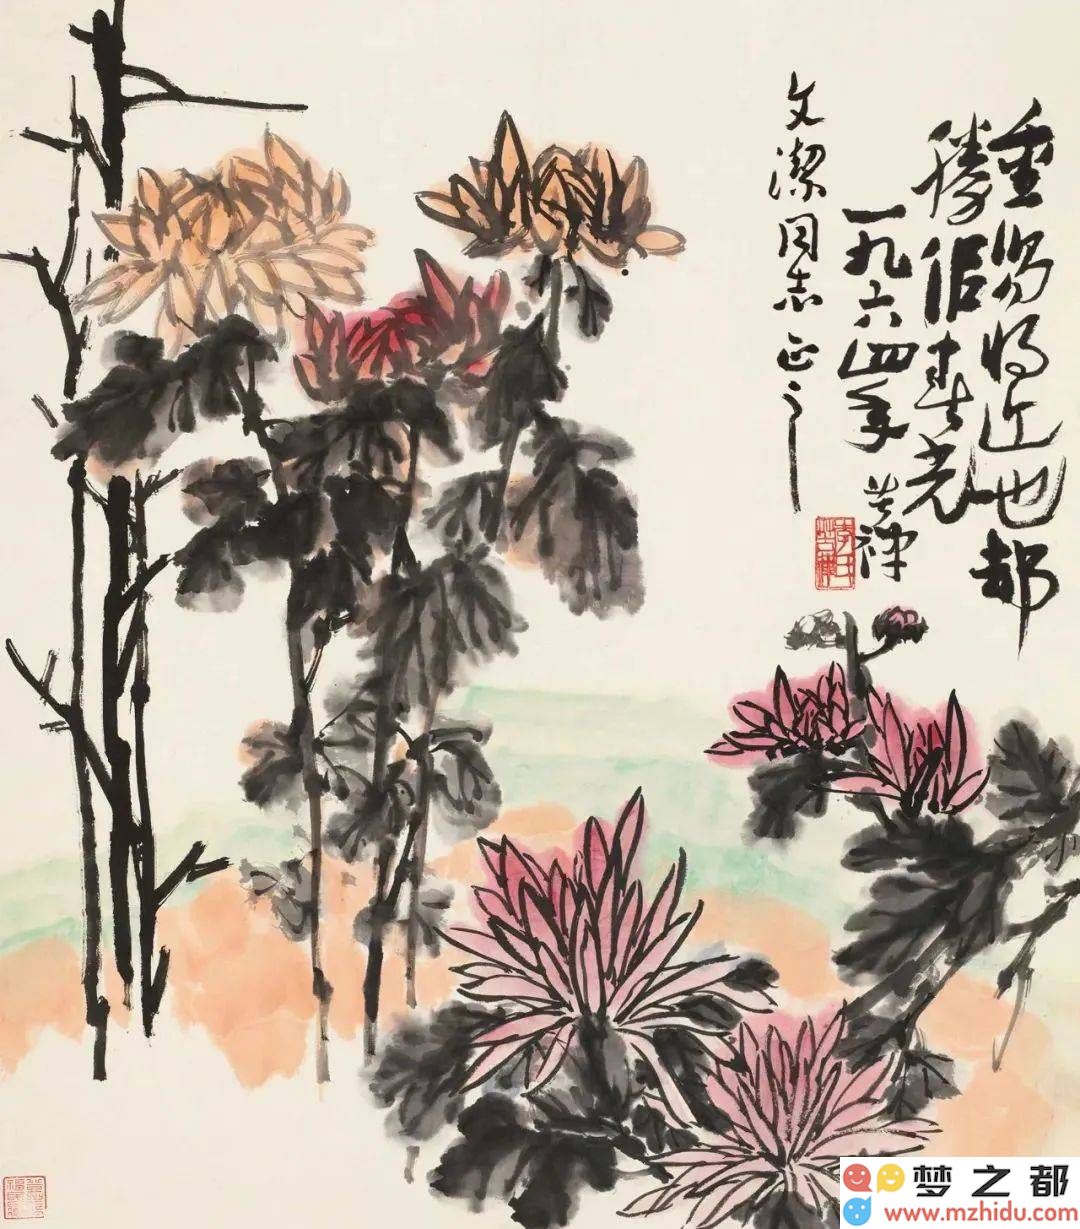 重阳将近也都
勝似春光
一九六四年 苦禅
文潔同志正之
李氏苦禪
梦之都
www.mzhidu.com